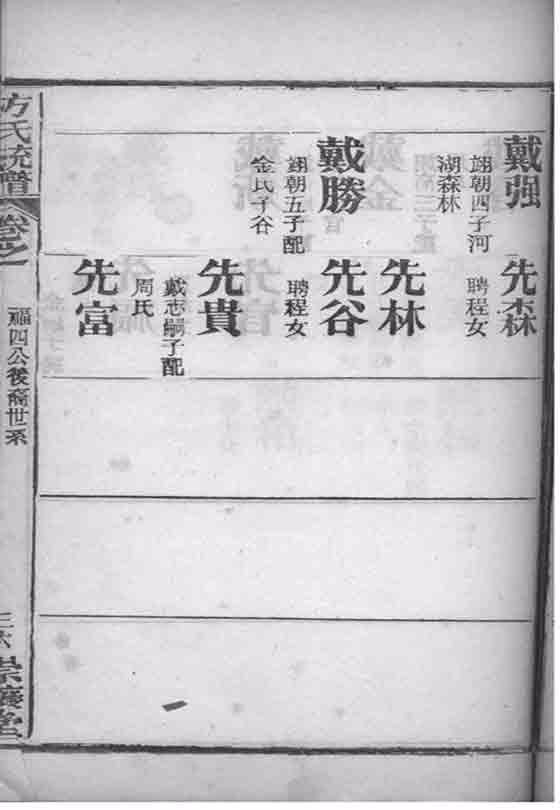 戴强
翊朝四子河
湖森林
戴勝
翊朝五子配
金氏子谷
先森
聘程女
先林
先谷
聘程女
先貴
戴志嗣子配
周氏
先富
方氏統譜
卷之一
福四公後裔世系
崇義堂